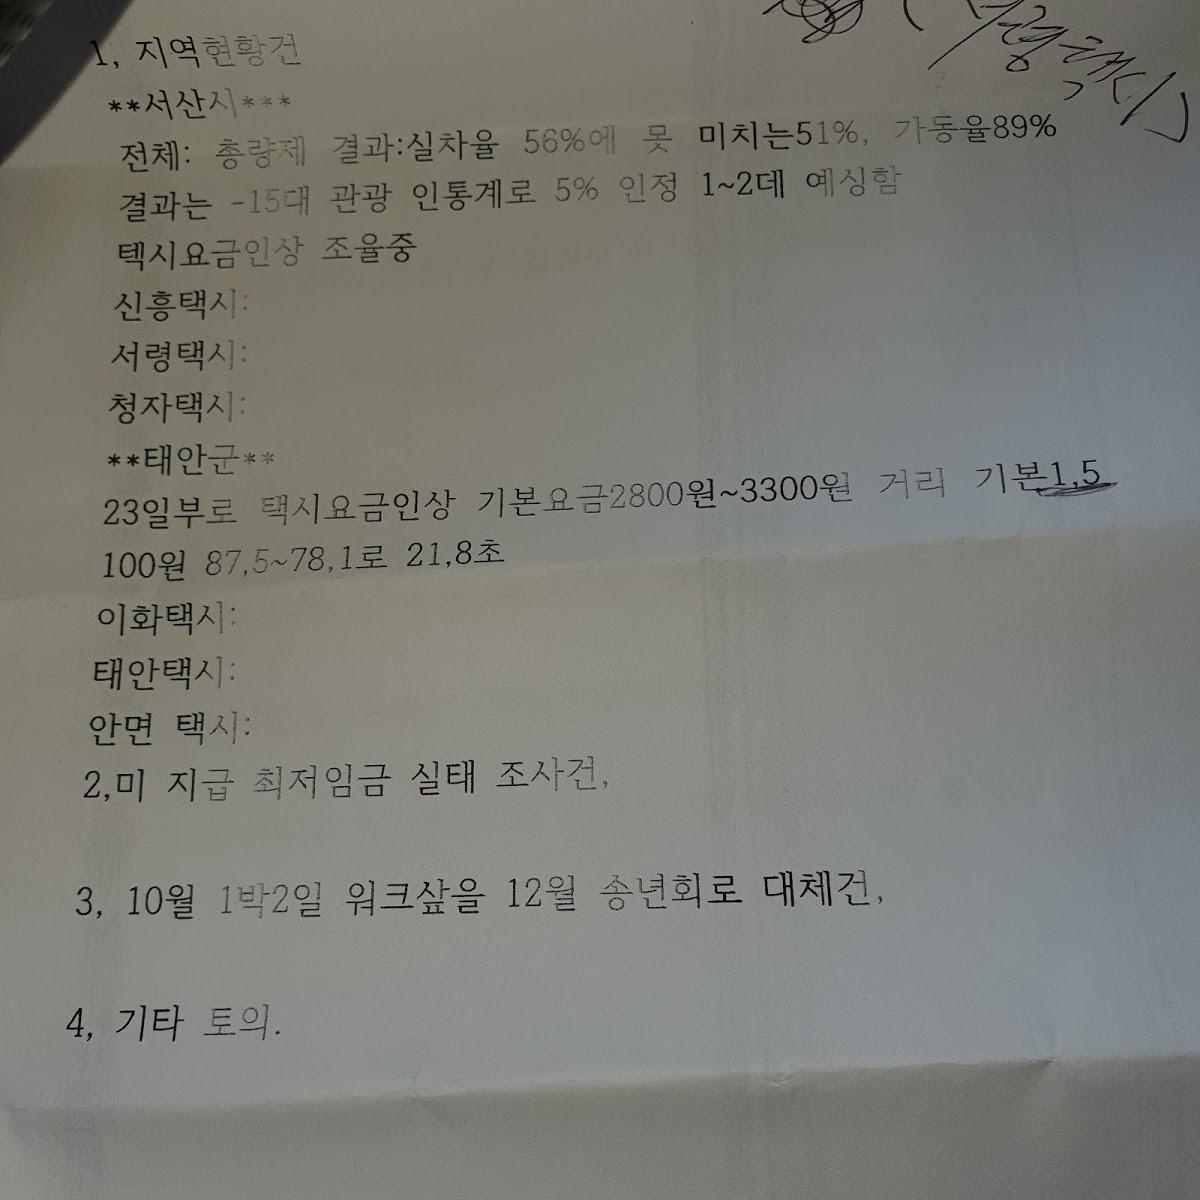 서령택시)
1, 지역현황건
**서산시***
전체: 총량제 결과:실차율 56%에 못 미치는51%, 가동율89%
결과는 -15대 관광 인통계로 5% 인정 1~2데 예싱함
텍시요금인상 조율중
신흥택시:
서령택시:
청자택시:
**태안군**
23일부로 택시요금인상 기본요금2800원~3300원 거리 기본1,5
100원 87,5~78,1로 21,8초
이화택시:
태안택시:
안면 택시:
2,미 지급 최저임금 실태 조사건,
3, 10월 1박2일 워크샾을 12월 송년회로 대체건,
4, 기타 토의.